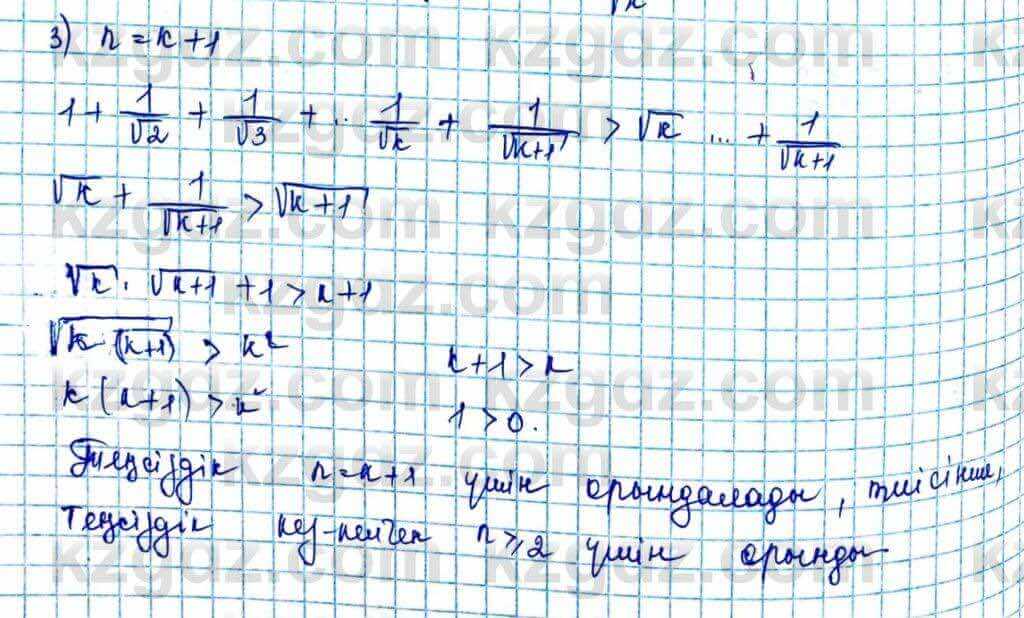 3) n = k + 1
1 + 1/√2 + 1/√3 + .. 1/√k + 1/√k+1 > √k ... + 1/√k+1
√k + 1/√k+1 > √k+1
√k · √k+1 + 1 > k+1
√k · (k+1) > k² k+1 > k
k (k+1) > k² 1 > 0.
Теңсіздік n = k+1 үшін орындалады, тиісінше,
теңсіздік кез-келген n ≥ 2 үшін орынды
kzgdz.com